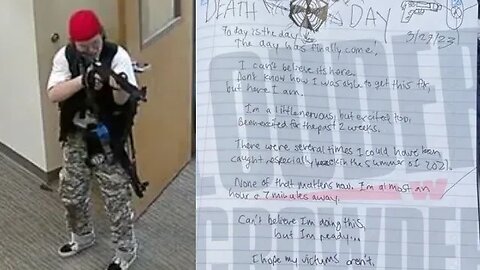 DEATH DAY
3/27/23
Today is the day
The day has finally come!
I can't believe its here.
Don't know how I was able to get this far,
but here I am.
I'm a little nervous, but excited too.
Been excited for the past 2 weeks.
There were several times I could have been
caught, especially back in the summer of 2021.
None of that matters now. I'm almost an
hour & 7 minutes away.
Can't believe I'm doing this,
but I'm ready...
I hope my victums aren't.
LOUDER
CROWDER